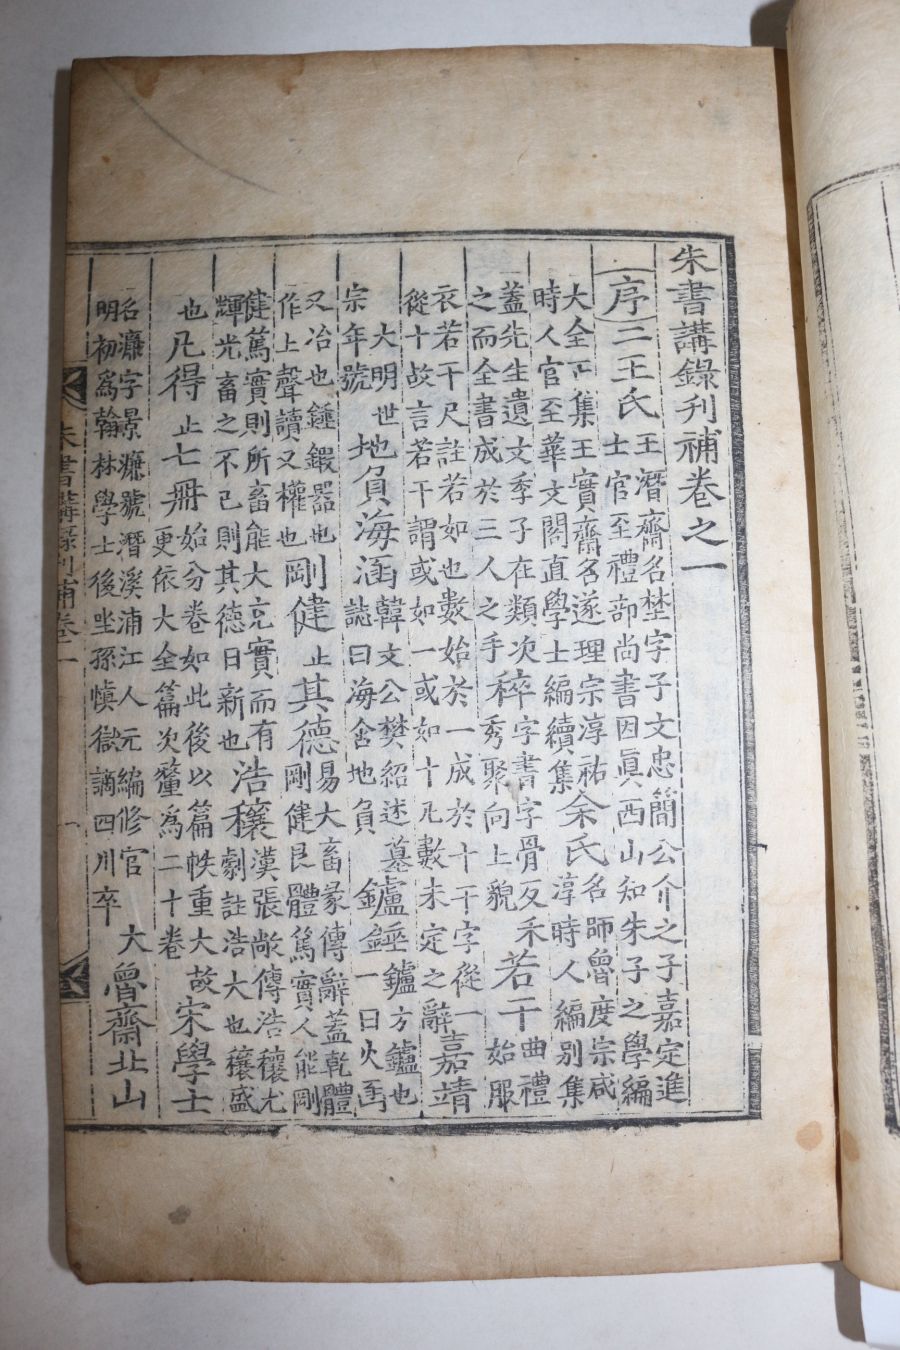 朱書講錄刊補卷之一
序 二王氏
王潛齋名埜字子文忠簡公介之子嘉定進
士官至禮部尚書因眞西山知朱子之學編
大全正集王實齋名遂理宗淳祐
時人官至華文閣直學士編續集
余氏
名師魯度宗咸
淳時人編別集
蓋先生遺文季子在類次
之而全書成於三人之手
稡
字書字骨反禾
秀聚向上貌
若干
曲禮
始服
衣若干尺註若如也數始於一成於十干字從一
從十故言若干謂或如一或如十凡數未定之辭
嘉靖
大明世
宗年號
地負海涵
韓文公樊紹述墓
誌曰海含地負
鑪錘
鑪方鑪也
一曰火函
又冶也錘鍜器也
作上聲讀又權也
剛健止其德
易大畜彖傳辭蓋乾體
剛健艮體篤實人能剛
健篤實則所畜能大充實而有
輝光畜之不已則其德日新也
浩穰
漢張敞傳浩穰尤
劇註浩大也穰盛
也
凡得止七册
始分卷如此後以篇帙重大故
更依大全篇次釐爲二十卷
宋學士
名濂字景濂號潛溪浦江人元編修官大
明初爲翰林學士後坐孫愼獄謫四川卒
魯齋北山
朱書講錄刊補卷一 一